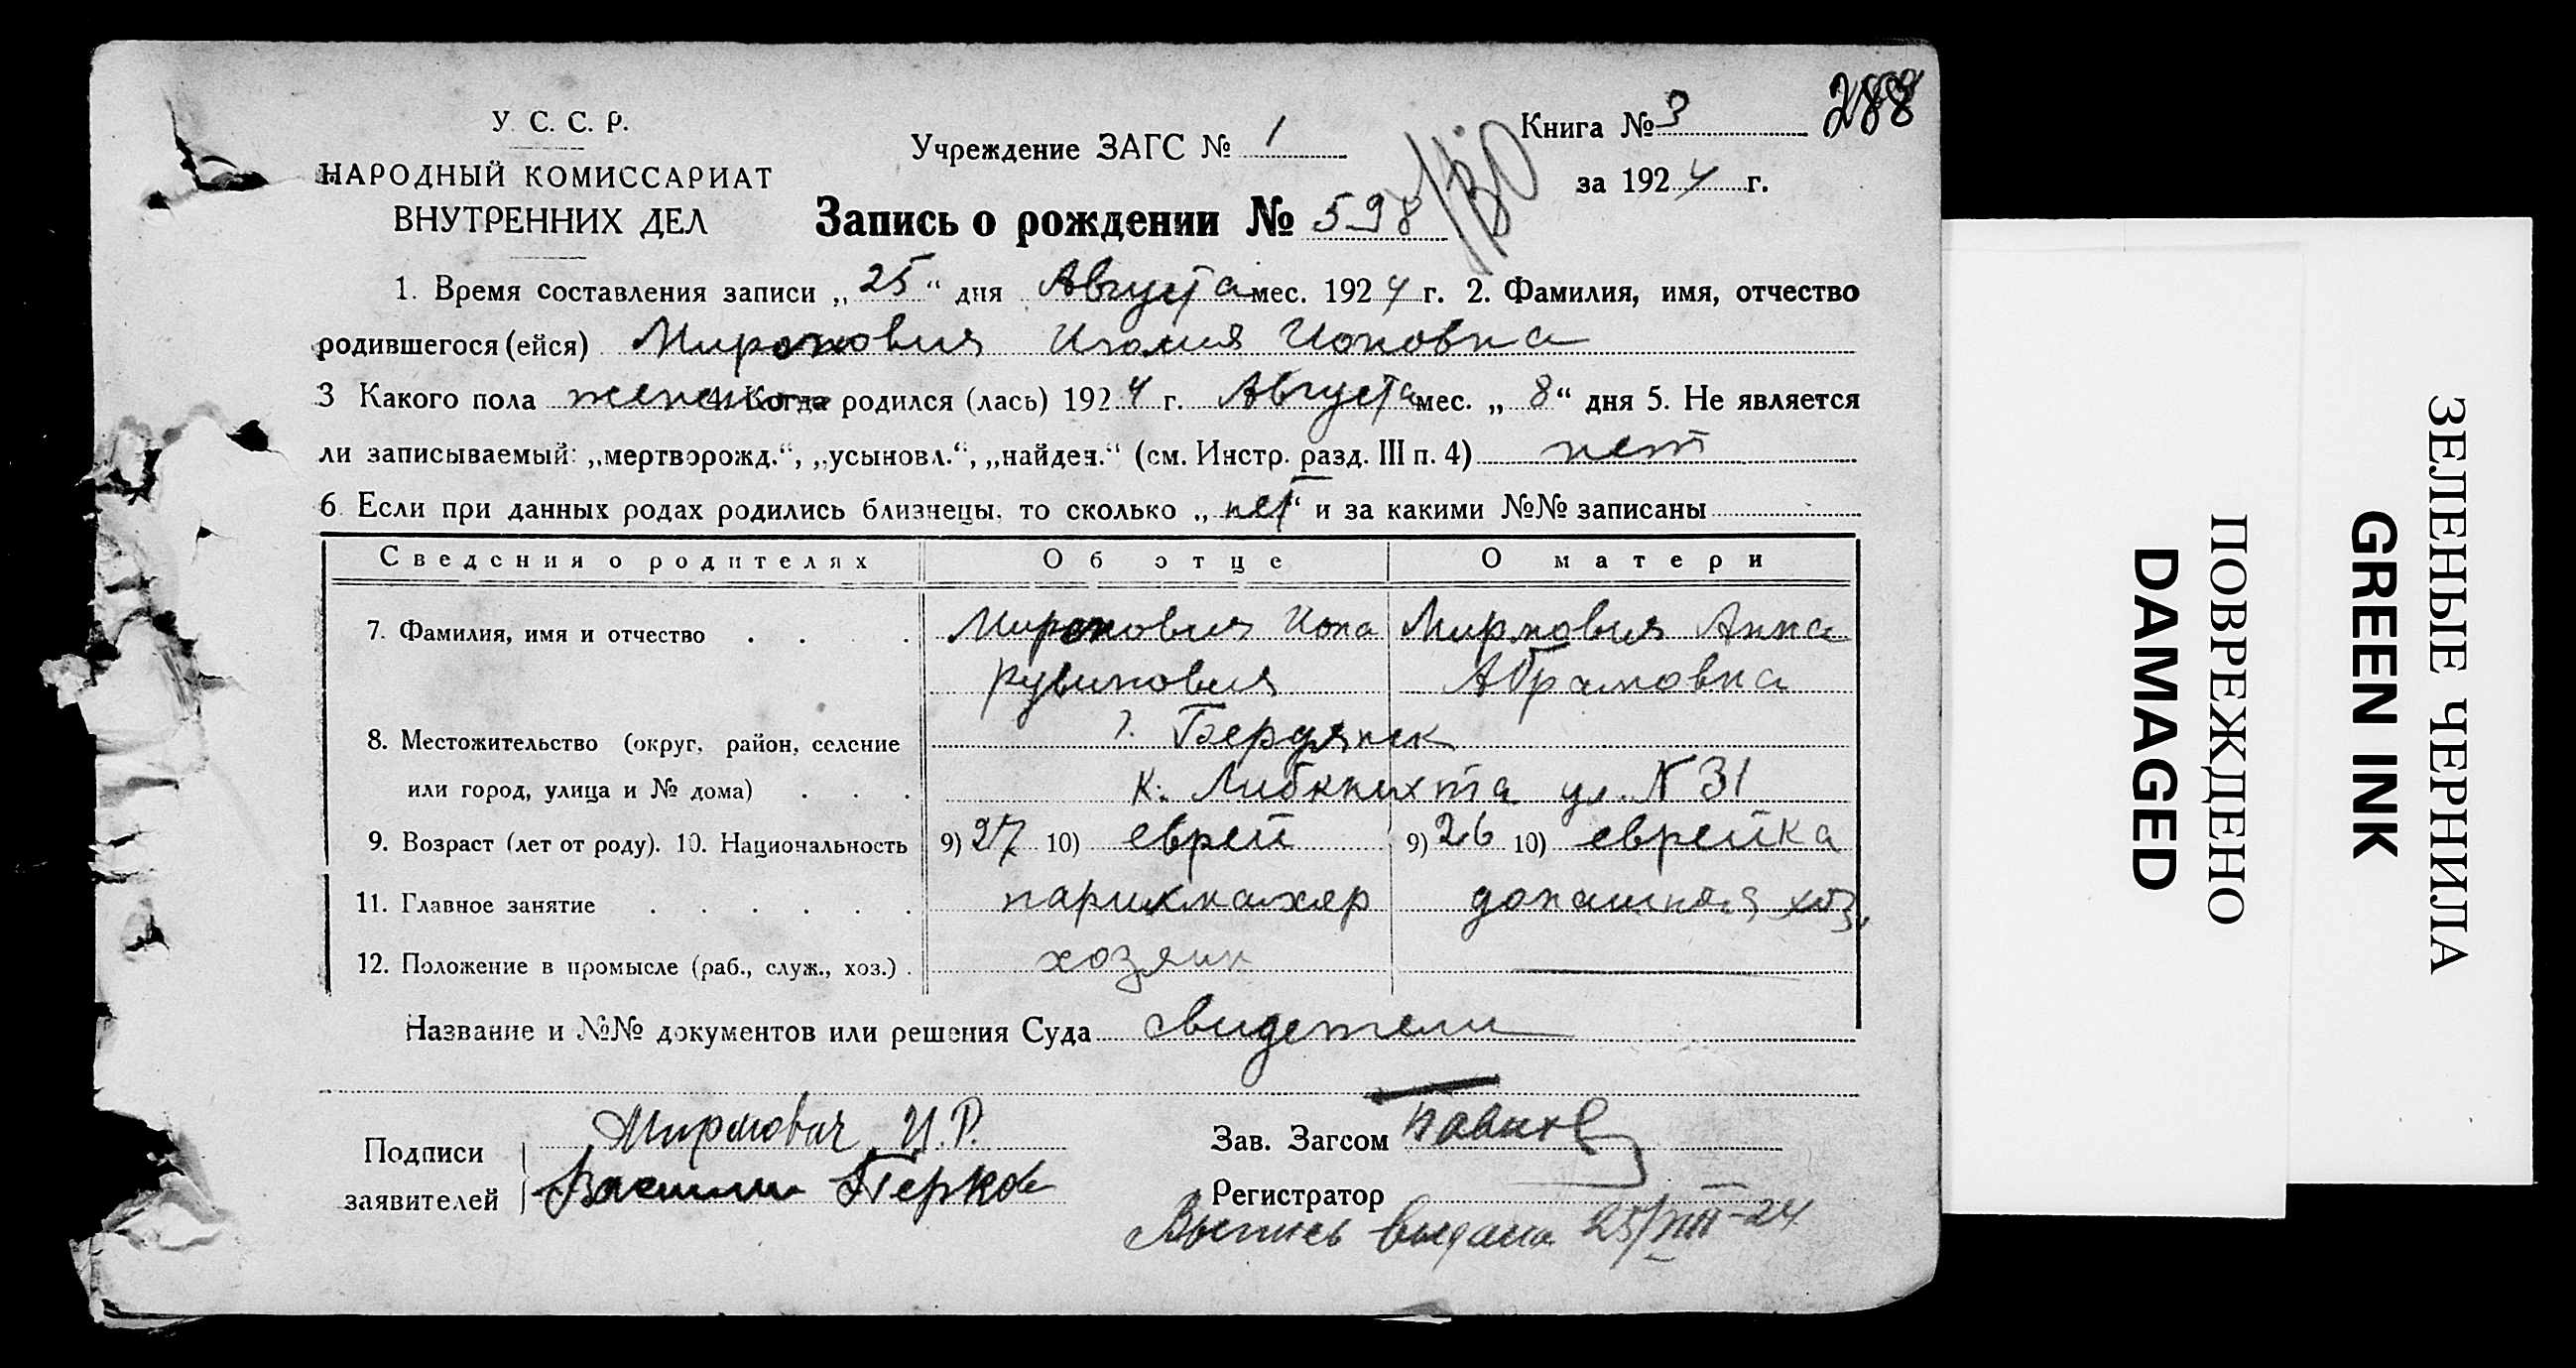 288
У. С. С. Р.
НАРОДНЫЙ КОМИССАРИАТ
ВНУТРЕННИХ ДЕЛ
Учреждение ЗАГС № 1
Книга № 3
за 1924 г.
Запись о рождении № 598
1. Время составления записи „25“ дня Августа мес. 1924 г. 2. Фамилия, имя, отчество
родившегося (ейся) Миронович Ионовна
3 Какого пола женск 4. Когда родился (лась) 1924 г. Августа мес. „8“ дня 5. Не является
ли записываемый: „мертворожд.“, „усыновл.“, „найден.“ (см. Инстр. разд. III п. 4) нет
6. Если при данных родах родились близнецы, то сколько „нет“ и за какими №№ записаны
Сведения о родителях Об отце О матери
7. Фамилия, имя и отчество . . . . Миронович Иона Миронович Анна
Рувинович Абрамовна
8. Местожительство (округ, район, селение г. Бердянск
или город, улица и № дома) . . . К. Либкнихта ул. N 31
9. Возраст (лет от роду). 10. Национальность 9) 27 10) еврей 9) 26 10) еврейка
11. Главное занятие . . . . . . парикмахер домашняя хоз.
12. Положение в промысле (раб., служ., хоз.) . хозяин
Название и №№ документов или решения Суда свидетели
Подписи заявителей
Миронович И. Р.
Зав. Загсом
Регистратор
Выпись выдана 25/VIII-24
ЗЕЛЕНЫЕ ЧЕРНИЛА
GREEN INK
ПОВРЕЖДЕНО
DAMAGED